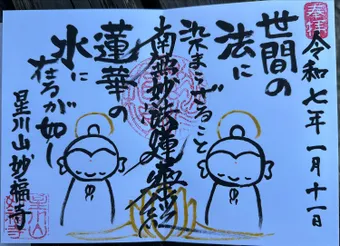 奉拝
令和七年一月十一日
世間の
法に
染まざること
南無妙法蓮華経
蓮華の
水に
在るが如し
星川山妙福寺